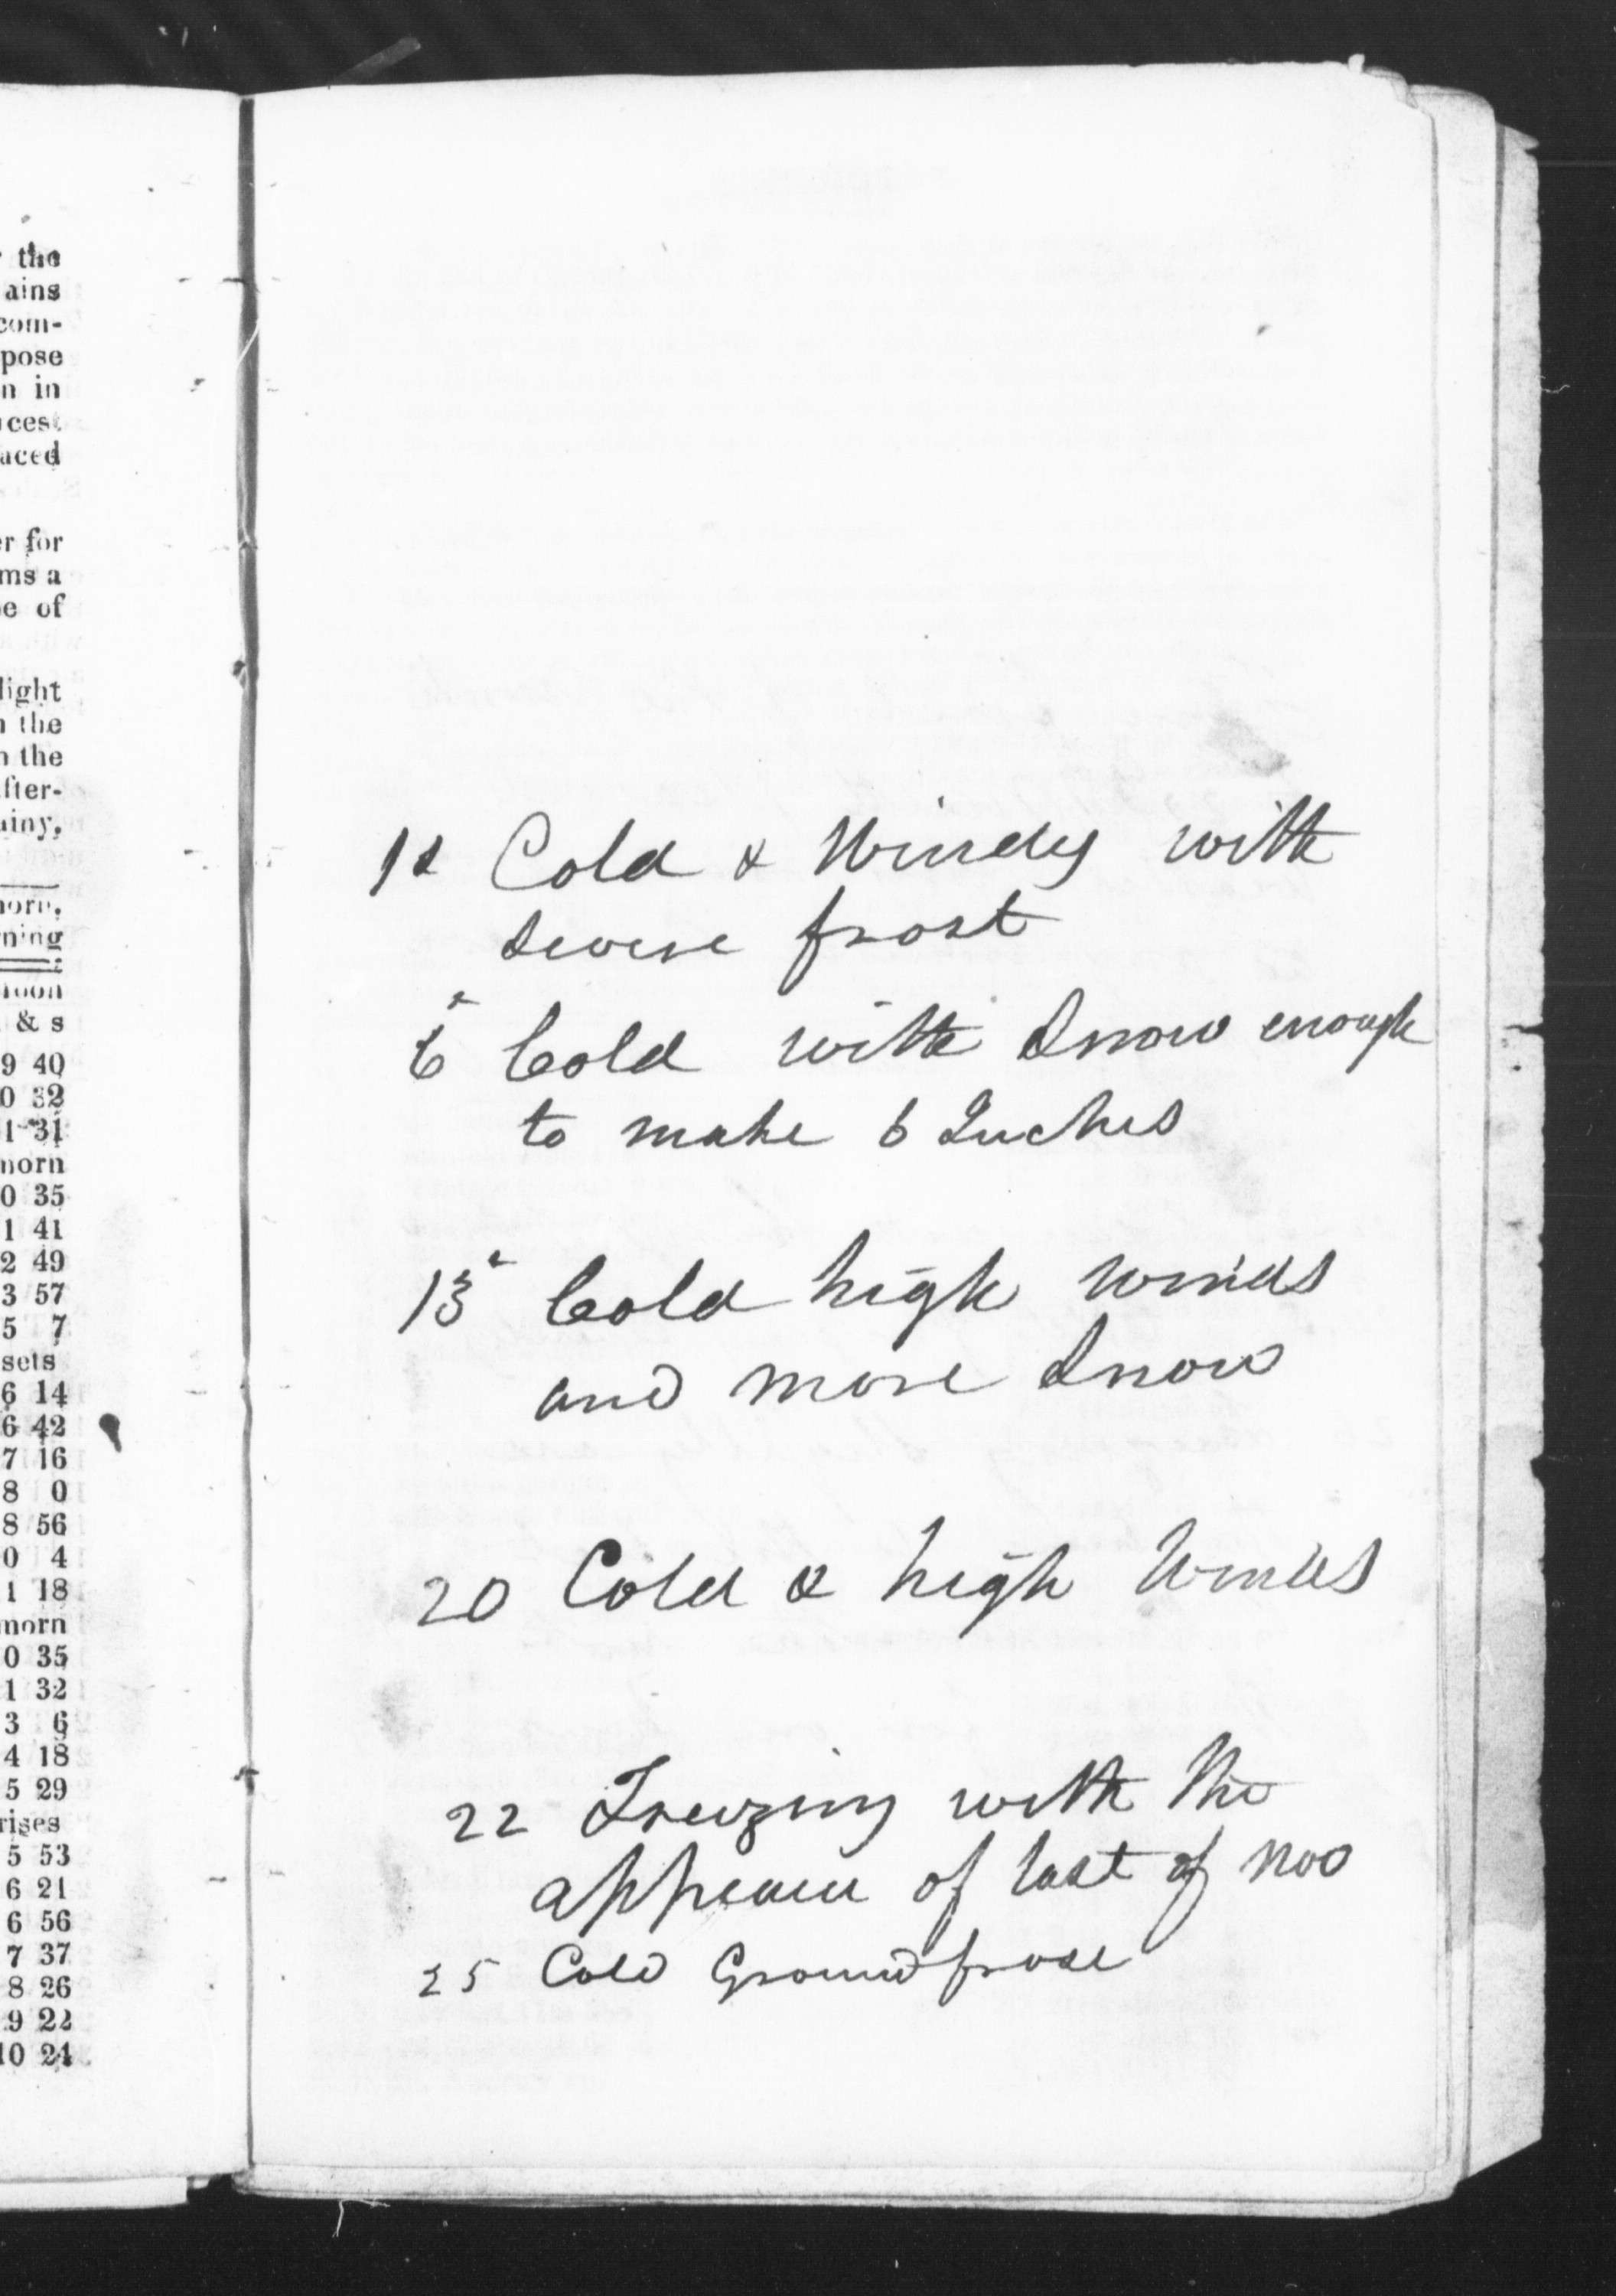 the
ains
com-
pose
n in
cest
aced
er for
ms a
e of
light
n the
n the
fter-
ainy,
morn,
ning
noon
& s
9 40
0 32
1 31
morn
0 35
1 41
2 49
3 57
5 7
sets
6 14
6 42
7 16
8 0
8 56
0 4
1 18
morn
0 35
1 32
3 6
4 18
5 29
rises
5 53
6 21
6 56
7 37
8 26
9 22
10 24
Cold & Windy with
severe frost
6 Cold with Snow enough
to make 6 Inches
13 Cold high winds
and more Snow
20 Cold & high Winds
22 Freezing with the
of last of Nov
25 Cold Ground froze